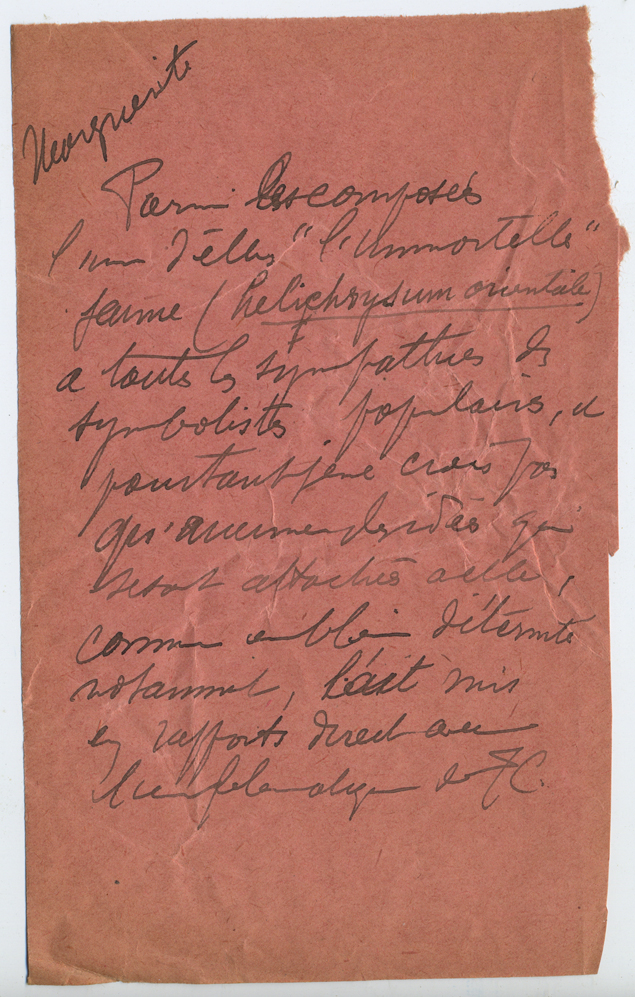 Marguerite
Parmi les composés
l'une d'elles "l'immortelle"
jaune (helichrysum orientale)
a toutes les sympathies des
symbolistes populaires, et
pourtant je ne crois pas
qu'aucune des idées qui
se sont attachés a elle,
comme emblème d'éternité
notamment, l'ait mis
en rapports direct avec
l'emblematique de J C.